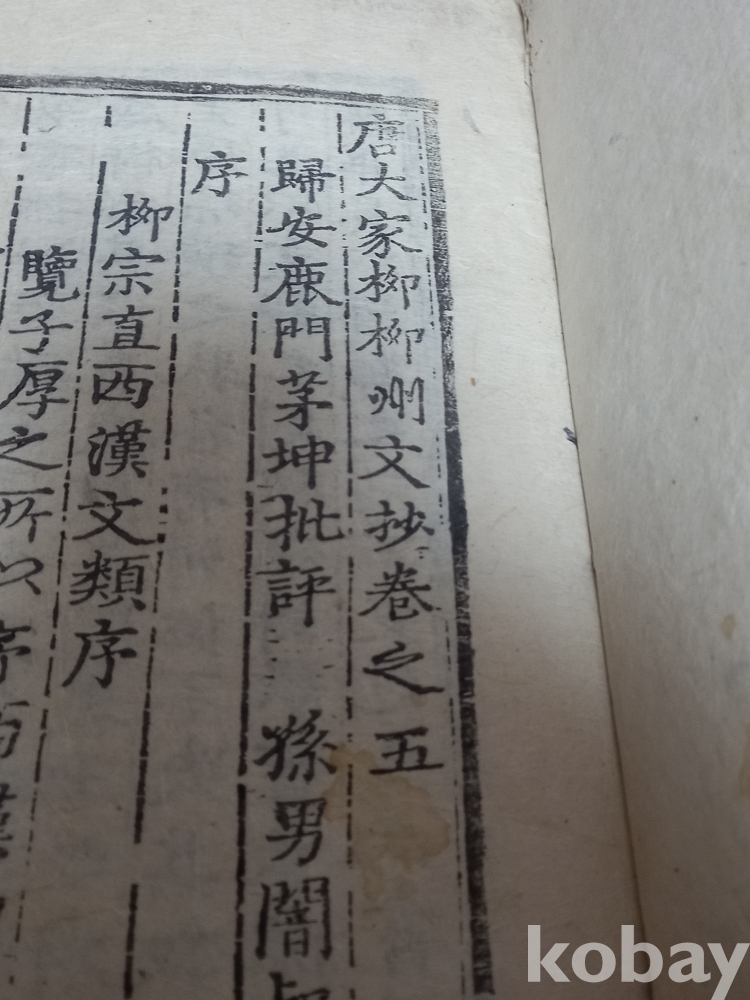 唐大家柳柳州文抄卷之五
歸安鹿門茅坤批評 孫男闇
序
柳宗直西漢文類序
覽子厚之所以序西漢
kobay